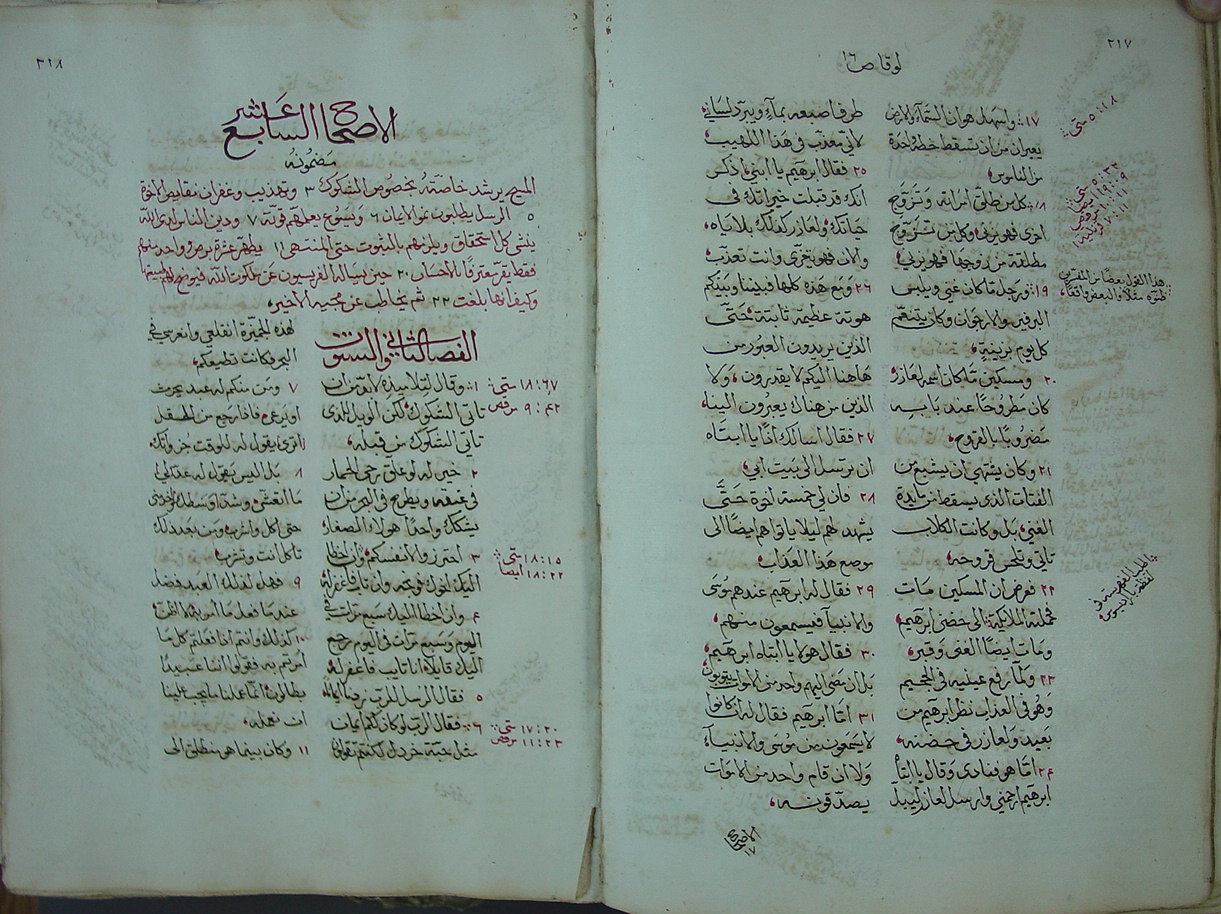 ٢١٧
لوقا ص ١٦
١٧ واسهل هو ان السماء والارض
يعبران من ان تسقط خطة واحدة
من الناموس
١٨ كل من طلق امراته وتزوج
اخرى فهو يزني وكل من تزوج
مطلقة من زوجها فهو يزني
١٩ ورجل ما كان غني ويلبس
البرفير والارجوان وكان يتنعم
كل يوم بزينة
٢٠ ومسكين ما كان اسمه لعازر
كان مطروحًا عند بابه
مضروبًا بالقروح
٢١ وكان يشتهي ان يشبع من
الفتات الذي يسقط من مايدة
الغني بل وكانت الكلاب
تاتي وتلحس قروحه
٢٢ فعرض ان المسكين مات
فحملته الملايكة الى حضن ابرهيم
ومات ايضًا الغني وقبر
٢٣ ولما رفع عينيه في الجحيم
وهو في العذاب نظر ابرهيم من
بعيد ولعازر في حضنه
٢٤ اما هو فنادى وقال يا ابتاه
ابرهيم ارحمني وارسل لعازر ليبل
طرف اصبعه بماء ويبرد لساني
لاني معذب في هذا اللهيب
٢٥ فقال ابرهيم يا ابني اذكر
انك قد قبلت خيراتك في
حياتك ولعازر كذلك بلاياه
والان فهو يتعزى وانت تعذب
٢٦ ومع هذه كلها فبيننا وبينكم
هوتة عظيمة ثابتة حتى
الذين يريدون العبور من
هاهنا اليكم لا يقدرون ولا
الذين من هناك يعبرون الينا
٢٧ فقال اسالك اذًا يا ابتاه
ان ترسل الى بيت ابي
٢٨ فان لي خمسة اخوة حتى
يشهد لهم ليلا ياتوا هم ايضًا الى
موضع هذا العذاب
٢٩ فقال له ابرهيم عندهم موسى
والانبياء فيسمعون منهم
٣٠ فقال هو لا يا ابتاه ابرهيم
بل ان مضى اليهم واحد من الاموات يتوبون
٣١ اما ابرهيم فقال له ان كانوا
لا يسمعون من موسى والانبياء
ولا ان قام واحد من الاموات
يصدقونه
الاصحاح
١٧
متى ٥:١٨
هذا القول بعضًا من المفسرين
٢١٨
الاصحاح السابع عشر
مضمونه
المسيح يرشد خاصته بخصوص الشكوك ٣ وتهذيب وغفران نقايص الاخوة
٥ الرسل يطلبون نمو الايمان ٦ ويسوع يعلمهم قوته ٧ ودين الناس لدى الله
ينفي كل استحقاق ويلزمهم بالثبوت حتى المنتهى ١١ يطهر عشرة برص وواحد منهم
فقط يقر معترفًا بالاحسان ٢٠ حين يساله الفريسيون عن ملكوت الله فيوضح لهم
وكيف انها بلغت ٢٢ ثم يخاطب عن مجيه الاخير
الفصل الثاني والستون
١ وقال لتلاميذه لا بد من ان
تاتي الشكوك لكن الويل للذي
تاتي الشكوك من قبله
٢ خير له لو علق رحى الحمار
في عنقه ويطرح في البحر من ان
يشكك واحدًا من هولاء الصغار
٣ احترزوا لانفسكم وان اخطا
اليك اخوك فوبخه وان تاب فاغفر له
٤ وان اخطا اليك سبع مرات في
اليوم وسبع مرات في اليوم رجع
اليك قايلًا انا تايب فاغفر له
٥ فقال الرسل للرب زدنا ايمانًا
٦ فقال الرب لو كان لكم ايمان
مثل حبة خردل لكنتم تقولون
لهذه الجميزة انقلعي وانغرسي في
البحر فكانت تطيعكم
٧ ومن منكم له عبد يحرث
او يرعى فاذا رجع من الحقل
اترى يقول له للوقت جز واتكئ
٨ بل اليس يقول له اعد لي
ما اتعشى وشد اوسطك واخدمني
حتى اكل واشرب ومن بعد ذلك
تاكل انت وتشرب
٩ فهل لذلك العبد فضل
عندما فعل ما امر به لا اظن
١٠ كذلك وانتم اذا فعلتم كل ما
امرتم به فقولوا اننا عبيد
بطالون انما عملنا ما يجب علينا
ان نعمله
١١ وكان بينما هو منطلق الى
متى ١٨:٦٧
مرقص ٩:٤٢
متى ١٨:١٥
ايضا ١٨:٢٢
متى ١٧:٢٠
مرقص ١١:٢٣